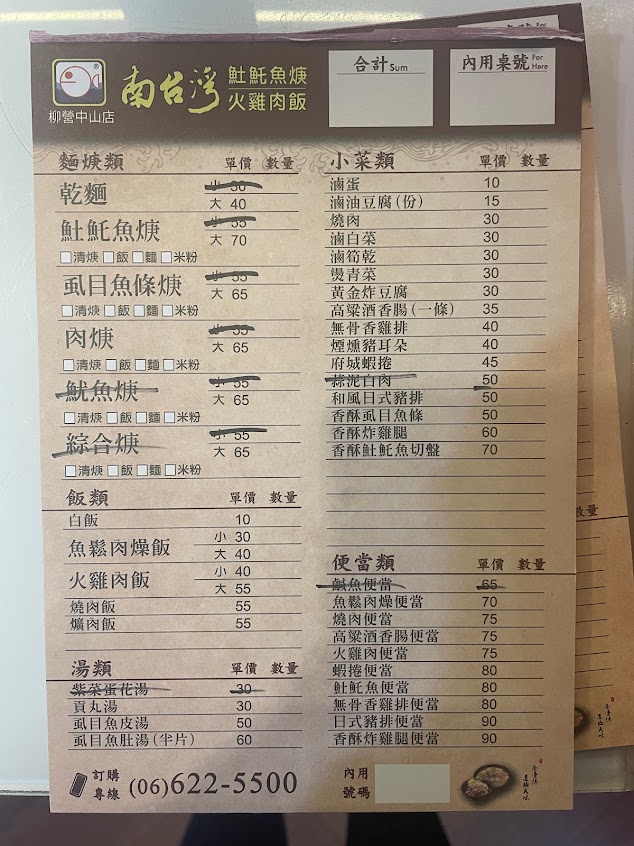 南台灣 𩵚魠魚焿
火雞肉飯
柳營中山店
合計 Sum
內用桌號 For Here
麵焿類 單價 數量
乾麵 小 30
大 40
𩵚魠魚焿 小 55
大 70
□清焿 □飯 □麵 □米粉
虱目魚條焿 小 55
大 65
□清焿 □飯 □麵 □米粉
肉焿 小 55
大 65
□清焿 □飯 □麵 □米粉
魷魚焿 小 55
大 65
□清焿 □飯 □麵 □米粉
綜合焿 小 55
大 65
□清焿 □飯 □麵 □米粉
飯類 單價 數量
白飯 10
魚鬆肉燥飯 小 30
大 40
火雞肉飯 小 40
大 55
燒肉飯 55
爌肉飯 55
湯類 單價 數量
紫菜蛋花湯 30
貢丸湯 30
虱目魚皮湯 50
虱目魚肚湯(半片) 60
訂購專線 (06)622-5500
小菜類 單價 數量
滷蛋 10
滷油豆腐(份) 15
燒肉 30
滷白菜 30
滷筍乾 30
燙青菜 30
黃金炸豆腐 30
高粱酒香腸(一條) 35
無骨香雞排 40
煙燻豬耳朵 40
府城蝦捲 45
蒜泥白肉 50
和風日式豬排 50
香酥虱目魚條 50
香酥炸雞腿 60
香酥𩵚魠魚切盤 70
便當類 單價 數量
鹹魚便當 65
魚鬆肉燥便當 70
燒肉便當 75
高粱酒香腸便當 75
火雞肉便當 75
蝦捲便當 80
𩵚魠魚便當 80
無骨香雞排便當 80
日式豬排便當 90
香酥炸雞腿便當 90
內用號碼
數量